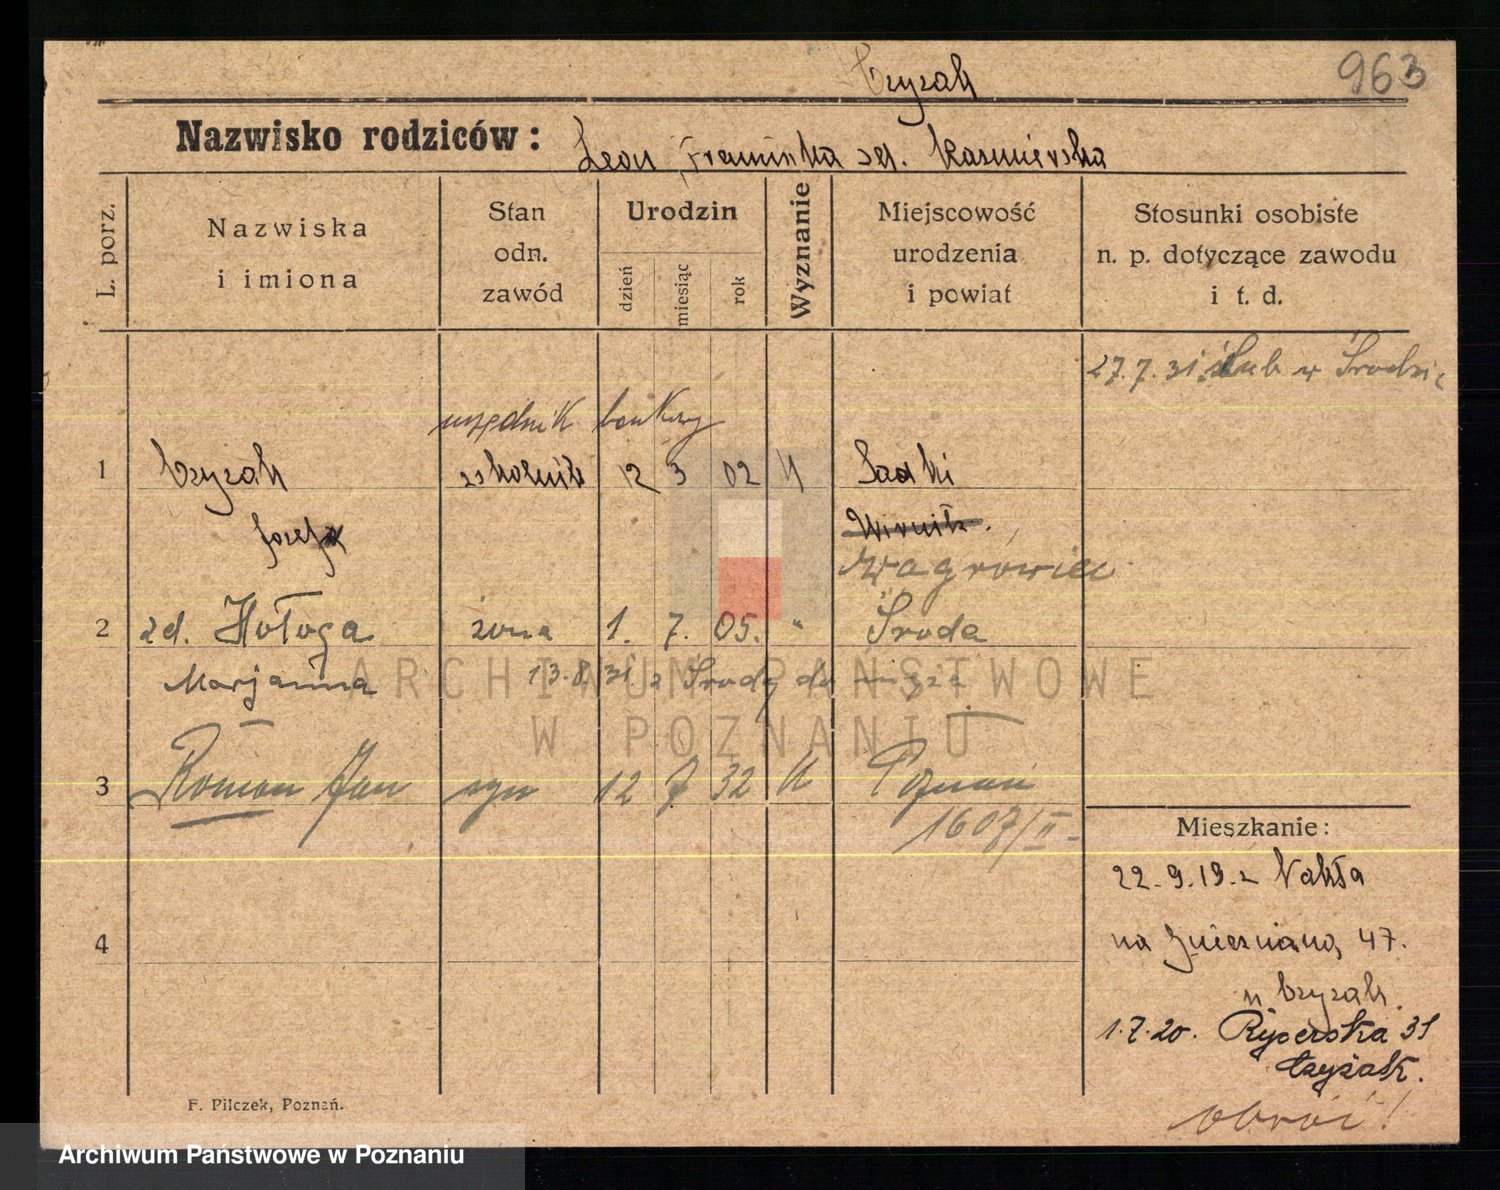 Czyżak 963
Nazwisko rodziców: Leon, Franciszka zd. Kaźmierska
L. porz.
Nazwiska
i imiona
Stan
odn.
zawód
Urodzin
dzień
miesiąc
rok
Wyznanie
Miejscowość
urodzenia
i powiat
Stosunki osobiste
n. p. dotyczące zawodu
i t. d.
27.7.31. ślub w Środzie
urzędnik bankowy
1 Czyzak 12 3 02 K Sadki
Józef
Wągrówiec
2 zd. Hołoga żona 1. 7. 05. " Środa
Marjanna 13.8.31. z Środy do
3 Roman Jan syn 12 7 32 K Poznań
1607/II-
Mieszkanie:
22.9.19. z Nakła
4
na Gnieźnianą 47.
u Czyzak.
1.7.20. Rycerska 31
Czyżak.
obróć!
F. Pilczek, Poznań.
ARCHIWUM PAŃSTWOWE
W POZNANIU
Archiwum Państwowe w Poznaniu